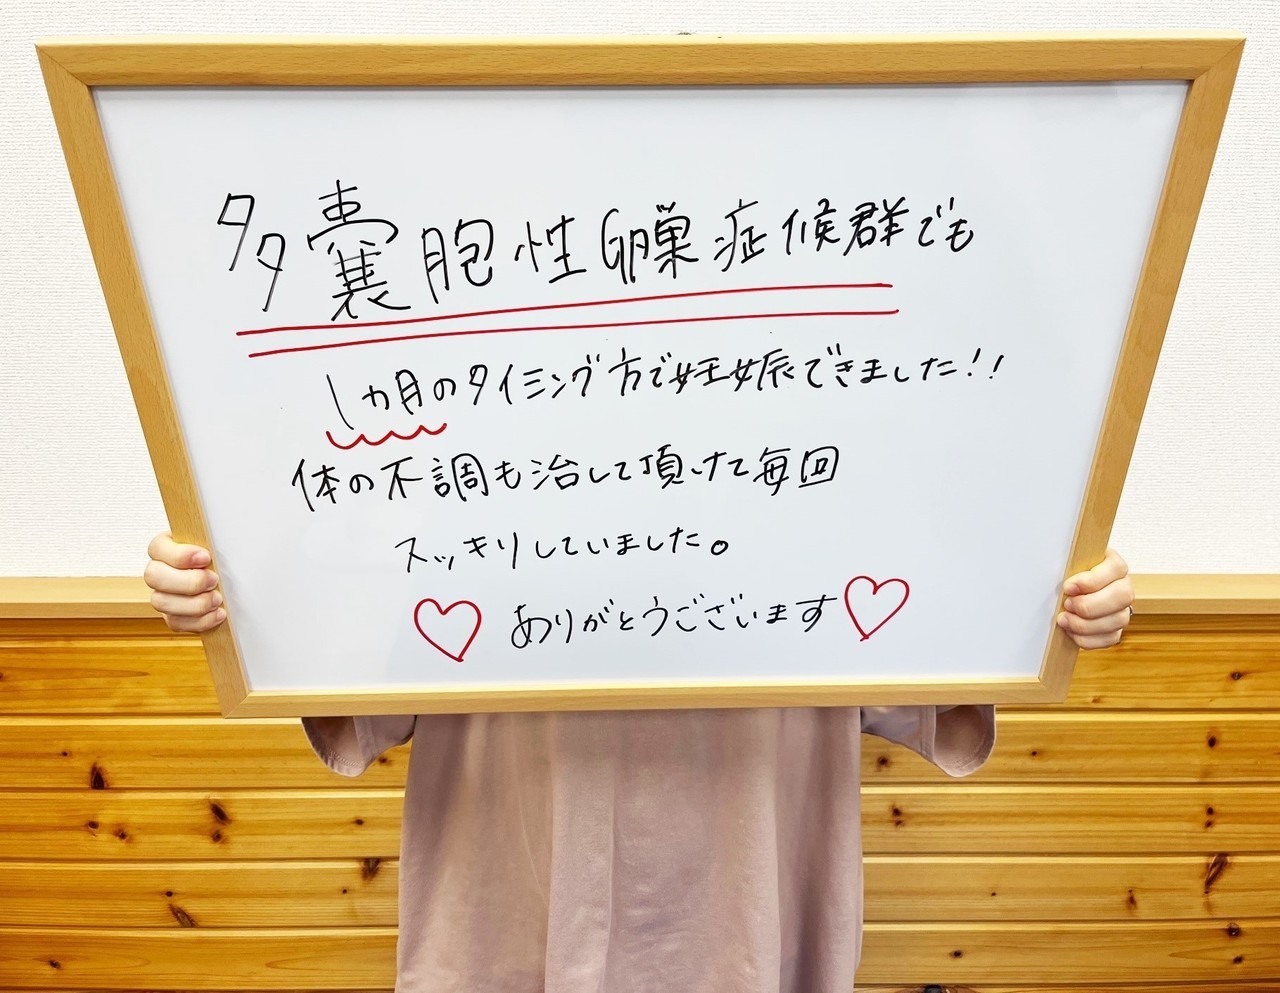 多嚢胞性卵巣症候群でも
1ヵ月のタイミング方で妊娠できました!!
体の不調も治して頂けて毎回
スッキリしていました。
♡ ありがとうございます♡